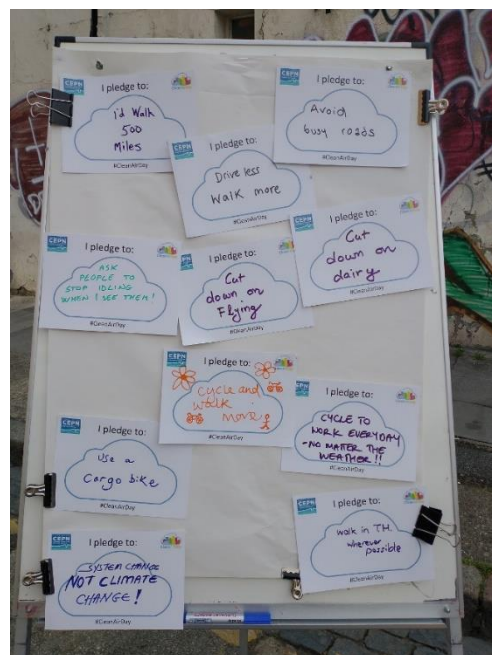 CEPN
I pledge to:
I'd Walk
500
Miles
#CleanAirDay
I pledge to:
Avoid
busy roads
#CleanAirDay
CEPN
I pledge to:
Drive less
Walk more
#CleanAirDay
CEPN
I pledge to:
Cut
down on
dairy
#CleanAirDay
CEPN
I pledge to:
ASK
PEOPLE TO
STOP IDLING
WHEN I SEE THEM!
#CleanAirDay
CEPN
I pledge to:
Cut
down on
Flying
#CleanAirDay
CEPN
I pledge to:
cycle and
walk
more
#CleanAirDay
CEPN
I pledge to:
CYCLE TO
WORK EVERYDAY
- NO MATTER THE
WEATHER!!
#CleanAirDay
CEPN
I pledge to:
Use a
Cargo bike
#CleanAirDay
CEPN
I pledge to:
walk in T.H.
wherever
possible
#CleanAirDay
CEPN
I pledge to:
SYSTEM CHANGE
NOT CLIMATE
CHANGE!
#CleanAirDay